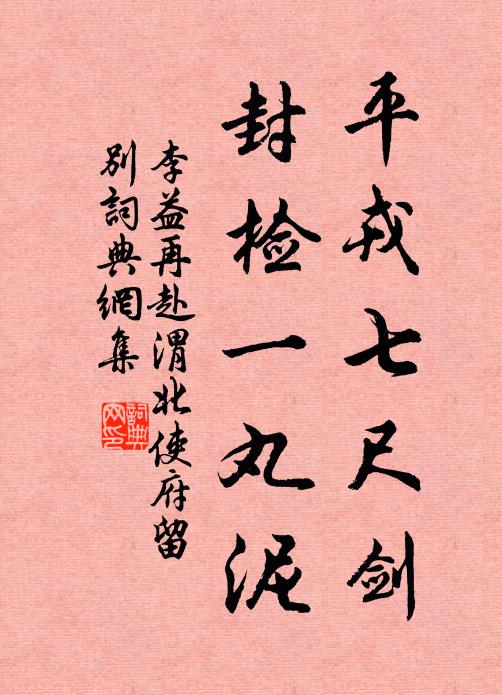 平戎七尺剑
封检一丸泥
李益再赴渭北使府留
別詞典網集
詞典
网印